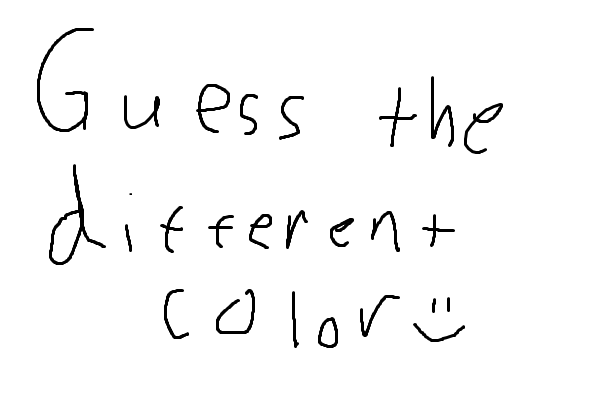 Guess the
different
color :)